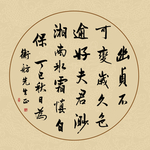 幽貞不
可變歲久色
逾好夫君渺
湘南冰霜慎自
保 丁巳秋日為
先生正